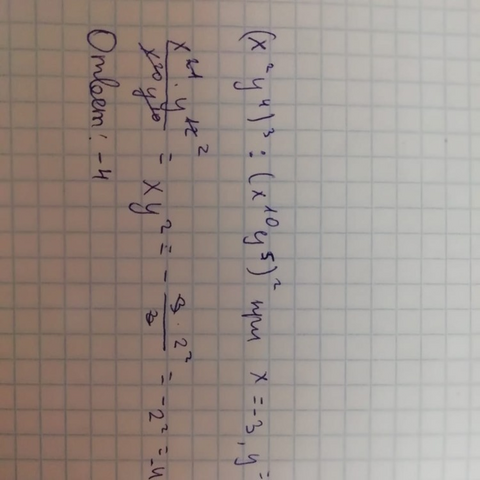 (x²y⁴)³ : (x¹⁰y⁵)² при x = -3, y =
x²¹ · y¹² / x²⁰ y¹⁰ = xy² = - 3 · 2² / 3 = -2² = -4
Ответ: -4